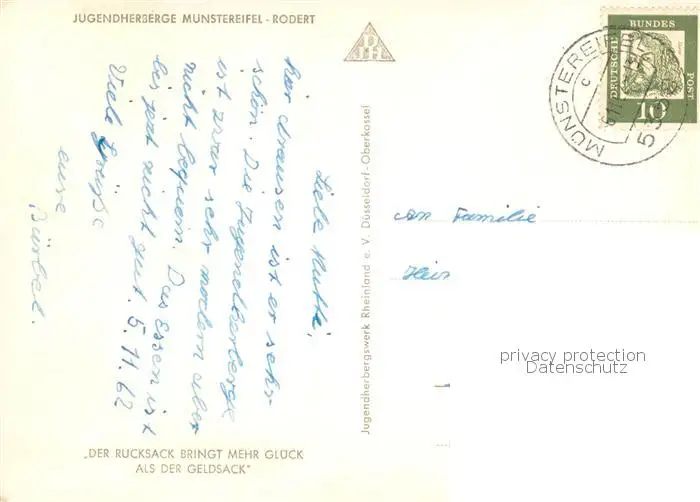 JUGENDHERBERGE MÜNSTEREIFEL - RODERT
Liebe Mutti,
hier draussen ist er sehr
schön. Die Jugendherberge
ist zwar sehr modern aber
nicht bequem. Das Essen ist
bis jetzt nicht gut. 5.11.62
Viele Grüße
eure
Bärbel.
„DER RUCKSACK BRINGT MEHR GLÜCK
ALS DER GELDSACK"
Jugendherbergswerk Rheinland e. V. Düsseldorf-Oberkassel
MÜNSTEREIFEL
DEUTSCHE
BUNDES
POST
10
An Familie
privacy protection
Datenschutz